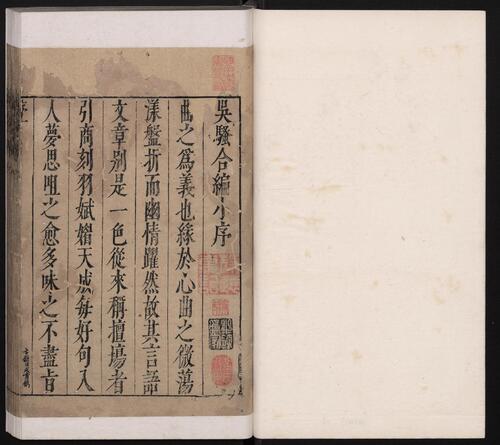 吳騷合編小序
曲之爲義也緣於心曲之微蕩
漾盤折而幽情躍然故其言語
文章別是一色從來稱擅塲者
引商刻羽娬媚天成每好句入
人夢思咀之愈多味之不盡旨
序一